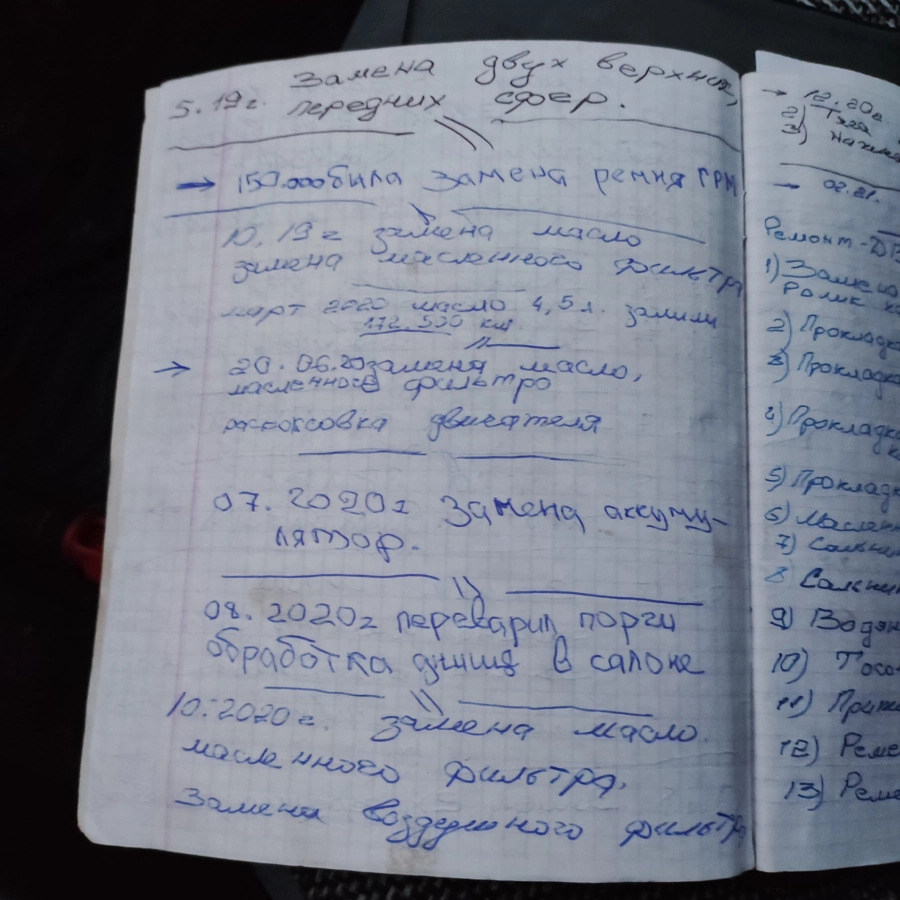 5.19г. Замена двух верхних,
передних сфер.
→ 150.000 била замена ремня ГРМ
10.19г замена масло
замена масленного фильтра
март 2020 масло 4,5 л. залили
172 500 км
→ 20.06.20 замена масло,
масленного фильтра
раскоксовка двигателя
07.2020г замена аккуму-
лятор.
08.2020г переварил порги
обработка днища в салоне
10.2020г. замена масло
масленного фильтра.
Замена воздушного фильтра
→ 12.20г.
2)
3)
→ 02.21.
Ремонт-ДВ
1) Замена
Ролик
2) Прокладк
3) Прокладк
4) Прокладк
5) Прокладк
6) Маслен
7) Сальни
8 Сальник
9) Водян
10) Тосо
11)
12) Реме
13) Реме